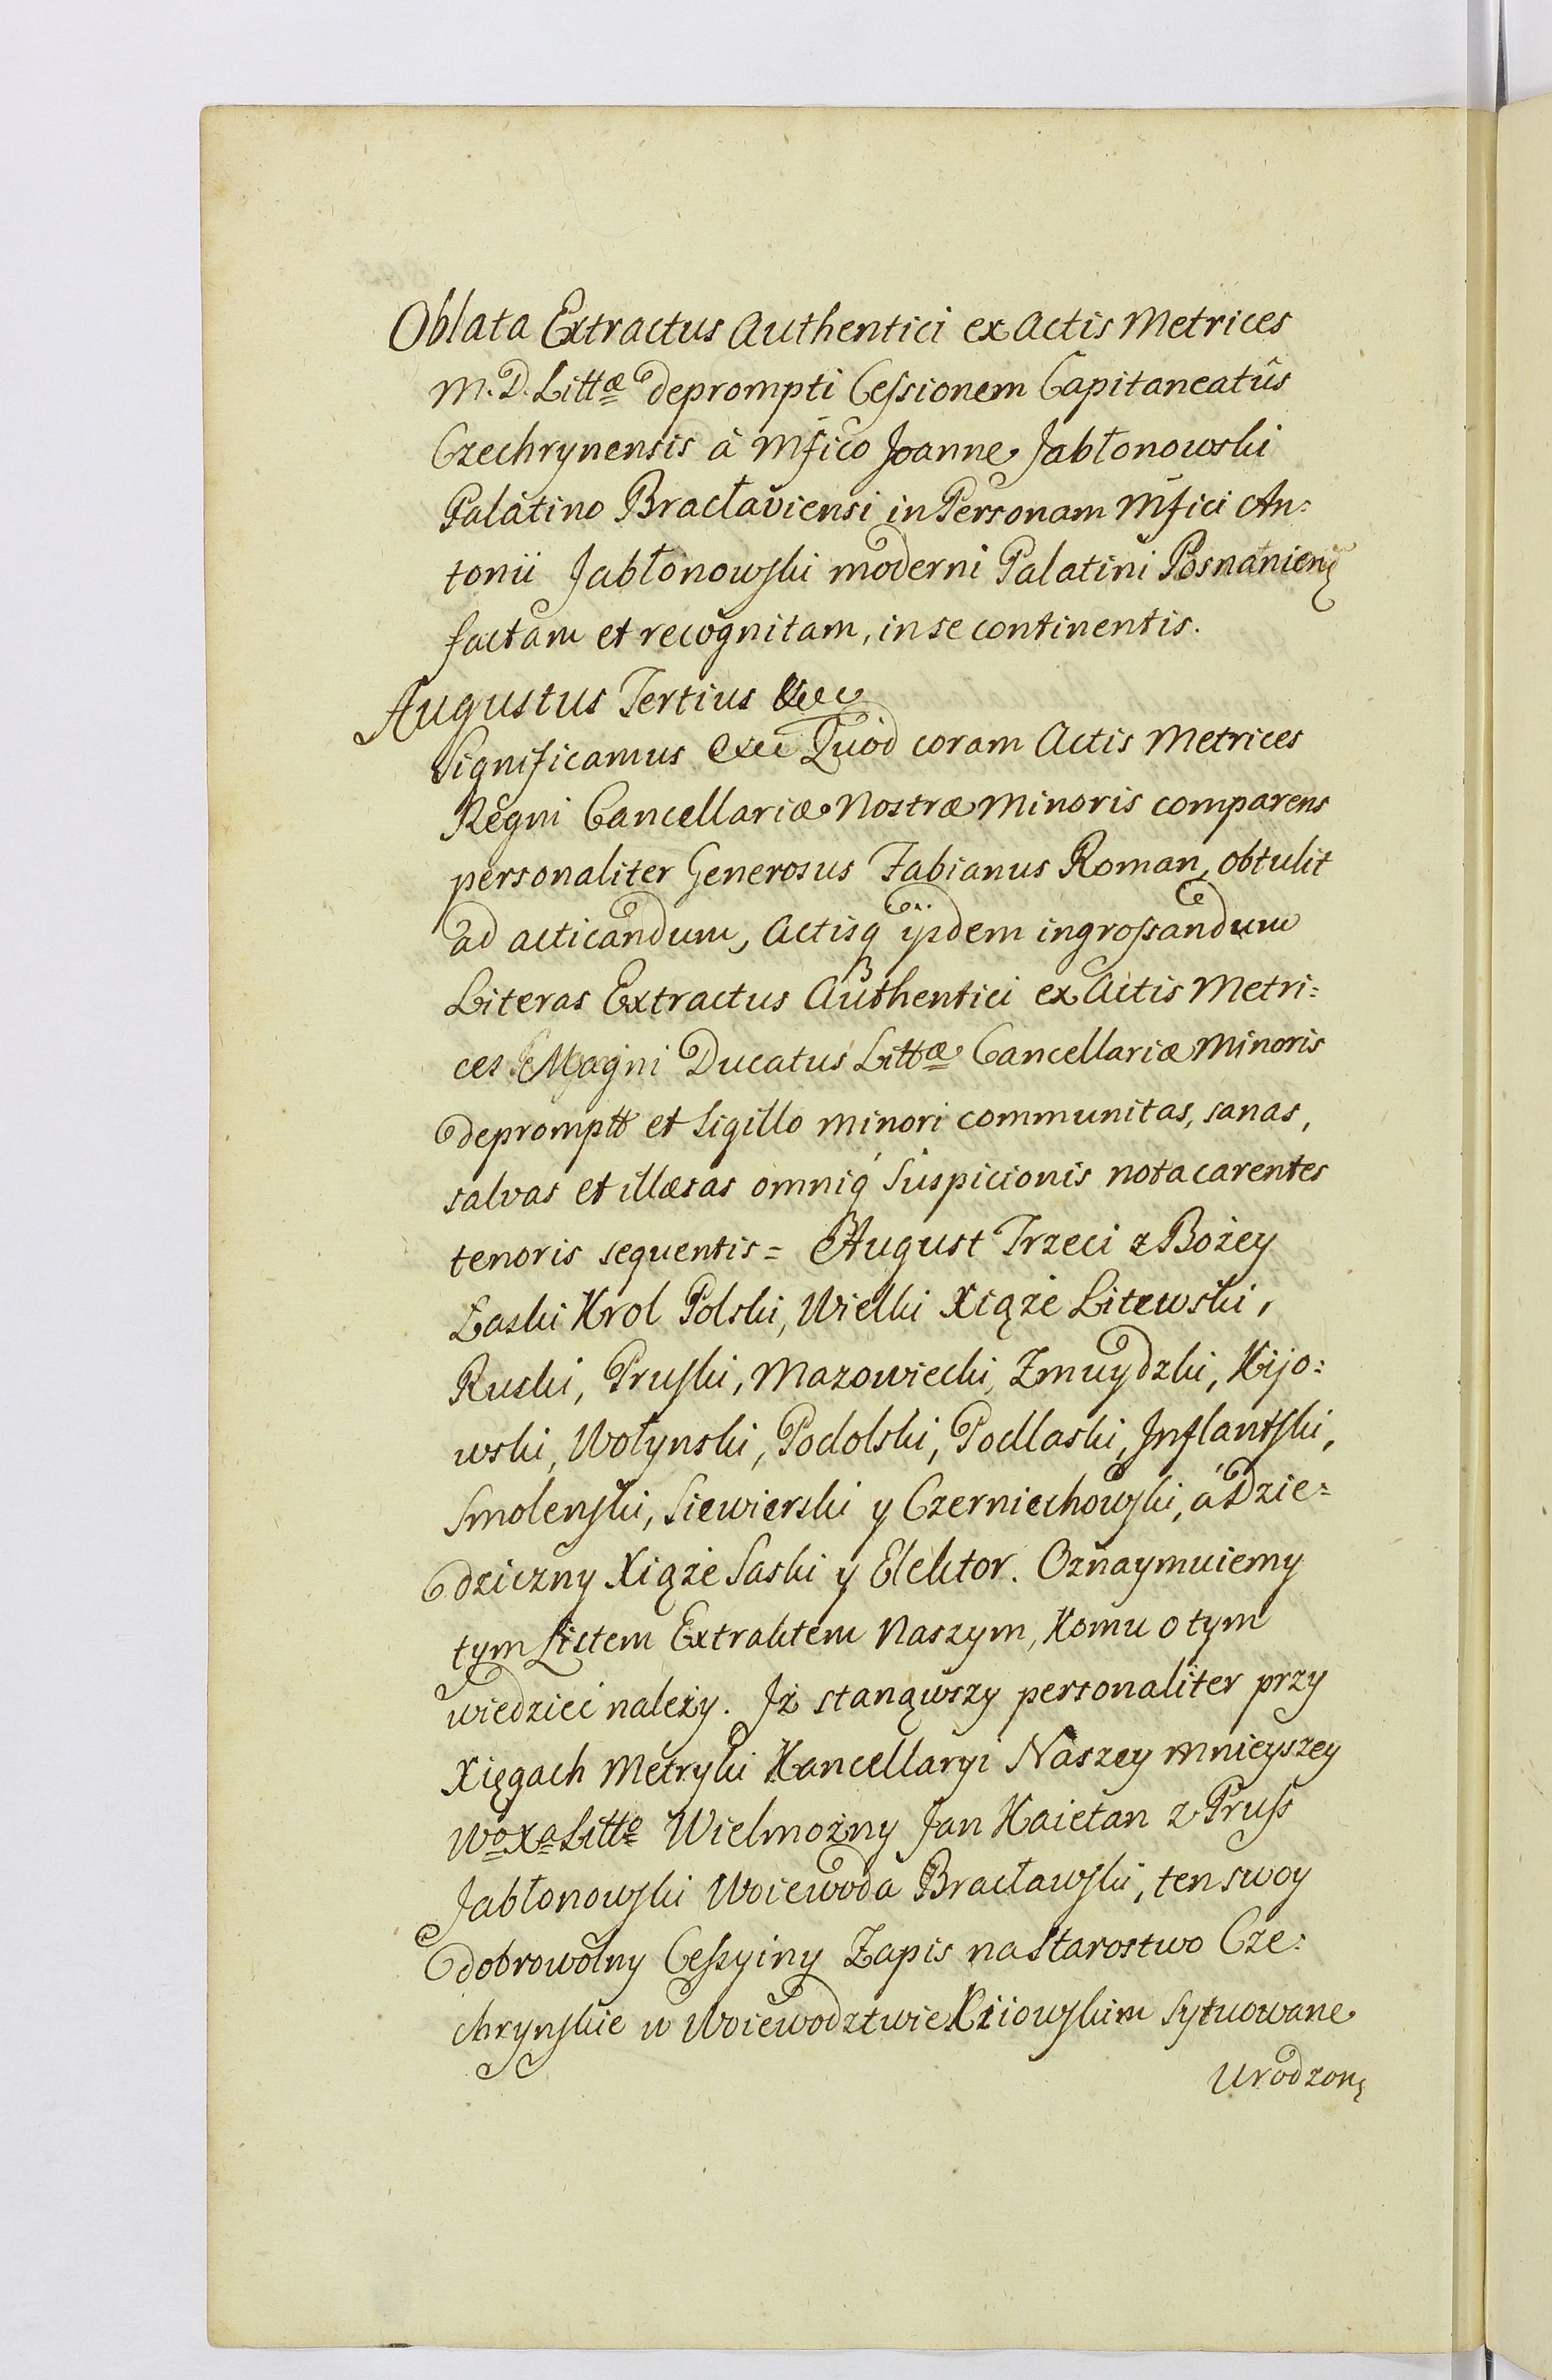 Oblata Extractus Authentici ex Actis Metrices
M. D. Littæ deprompti Cessionem Capitaneatûs
Czechrynensis à Mfico Joanne Jabłonowski
Palatino Bracłaviensi in Personam Mfici An:
tonii Jabłonowski moderni Palatini Posnanien̄
factam et recognitam, in se continentis.
Augustus Tertius &cc
Significamus &cc Quod coram Actis Metrices
Regni Cancellariæ Nostræ Minoris comparens
personaliter Generosus Fabianus Roman, obtulit
ad acticandum, Actisq ijsdem ingrossandum
Literas Extractus Authentici ex Actis Metri:
ces Magni Ducatus Littæ Cancellariæ Minoris
deprompti et Sigillo minori communitas, sanas,
salvas et illæsas omniq́ Suspicionis nota carentes
tenoris sequentis = August Trzeci z Bożey
Łaski Krol Polski, Wielki Xiąże Litewski,
Ruski, Pruski, Mazowiecki, Zmuydzki, Kijo:
wski, Wołynski, Podolski, Podlaski, Jnflantski,
Smolenski, Siewierski y Czerniechowski, á Dzie:
dziczny Xiąże Saski y Elektor. Oznaymuiemy
tym Listem Extraktem Naszym, Komu o tym
wiedzieć należy. Jż stanąwszy personaliter przy
Xięgach Metryki Kancellaryi Naszey mnieyszey
Wo Xa Litto Wielmożny Jan Kaietan z Pruss
Jabłonowski Woiewoda Bracławski, ten swoy
dobrowolny Cessyiny Zapis na Starostwo Cze:
chrynskie w Woiewodztwie Kiiowskim sytuowane
Urodzoną